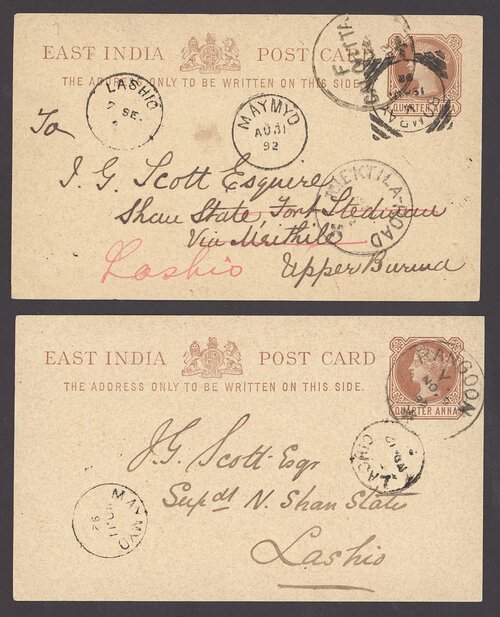 EAST INDIA POST CARD
THE ADDRESS ONLY TO BE WRITTEN ON THIS SIDE.
QUARTER ANNA
LASHIO
7 SE
MAYMYO
AU 31
92
To
J. G. Scott Esquire
Shan State, Fort Stedman
Via Meiktila
Lashio Upper Burma
MEKTILA-ROAD
EAST INDIA POST CARD
THE ADDRESS ONLY TO BE WRITTEN ON THIS SIDE.
QUARTER ANNA
RANGOON
LASHIO
J. G. Scott Esqr
Supdt N. Shan States
Lashio
MAYMYO
NO 11
92